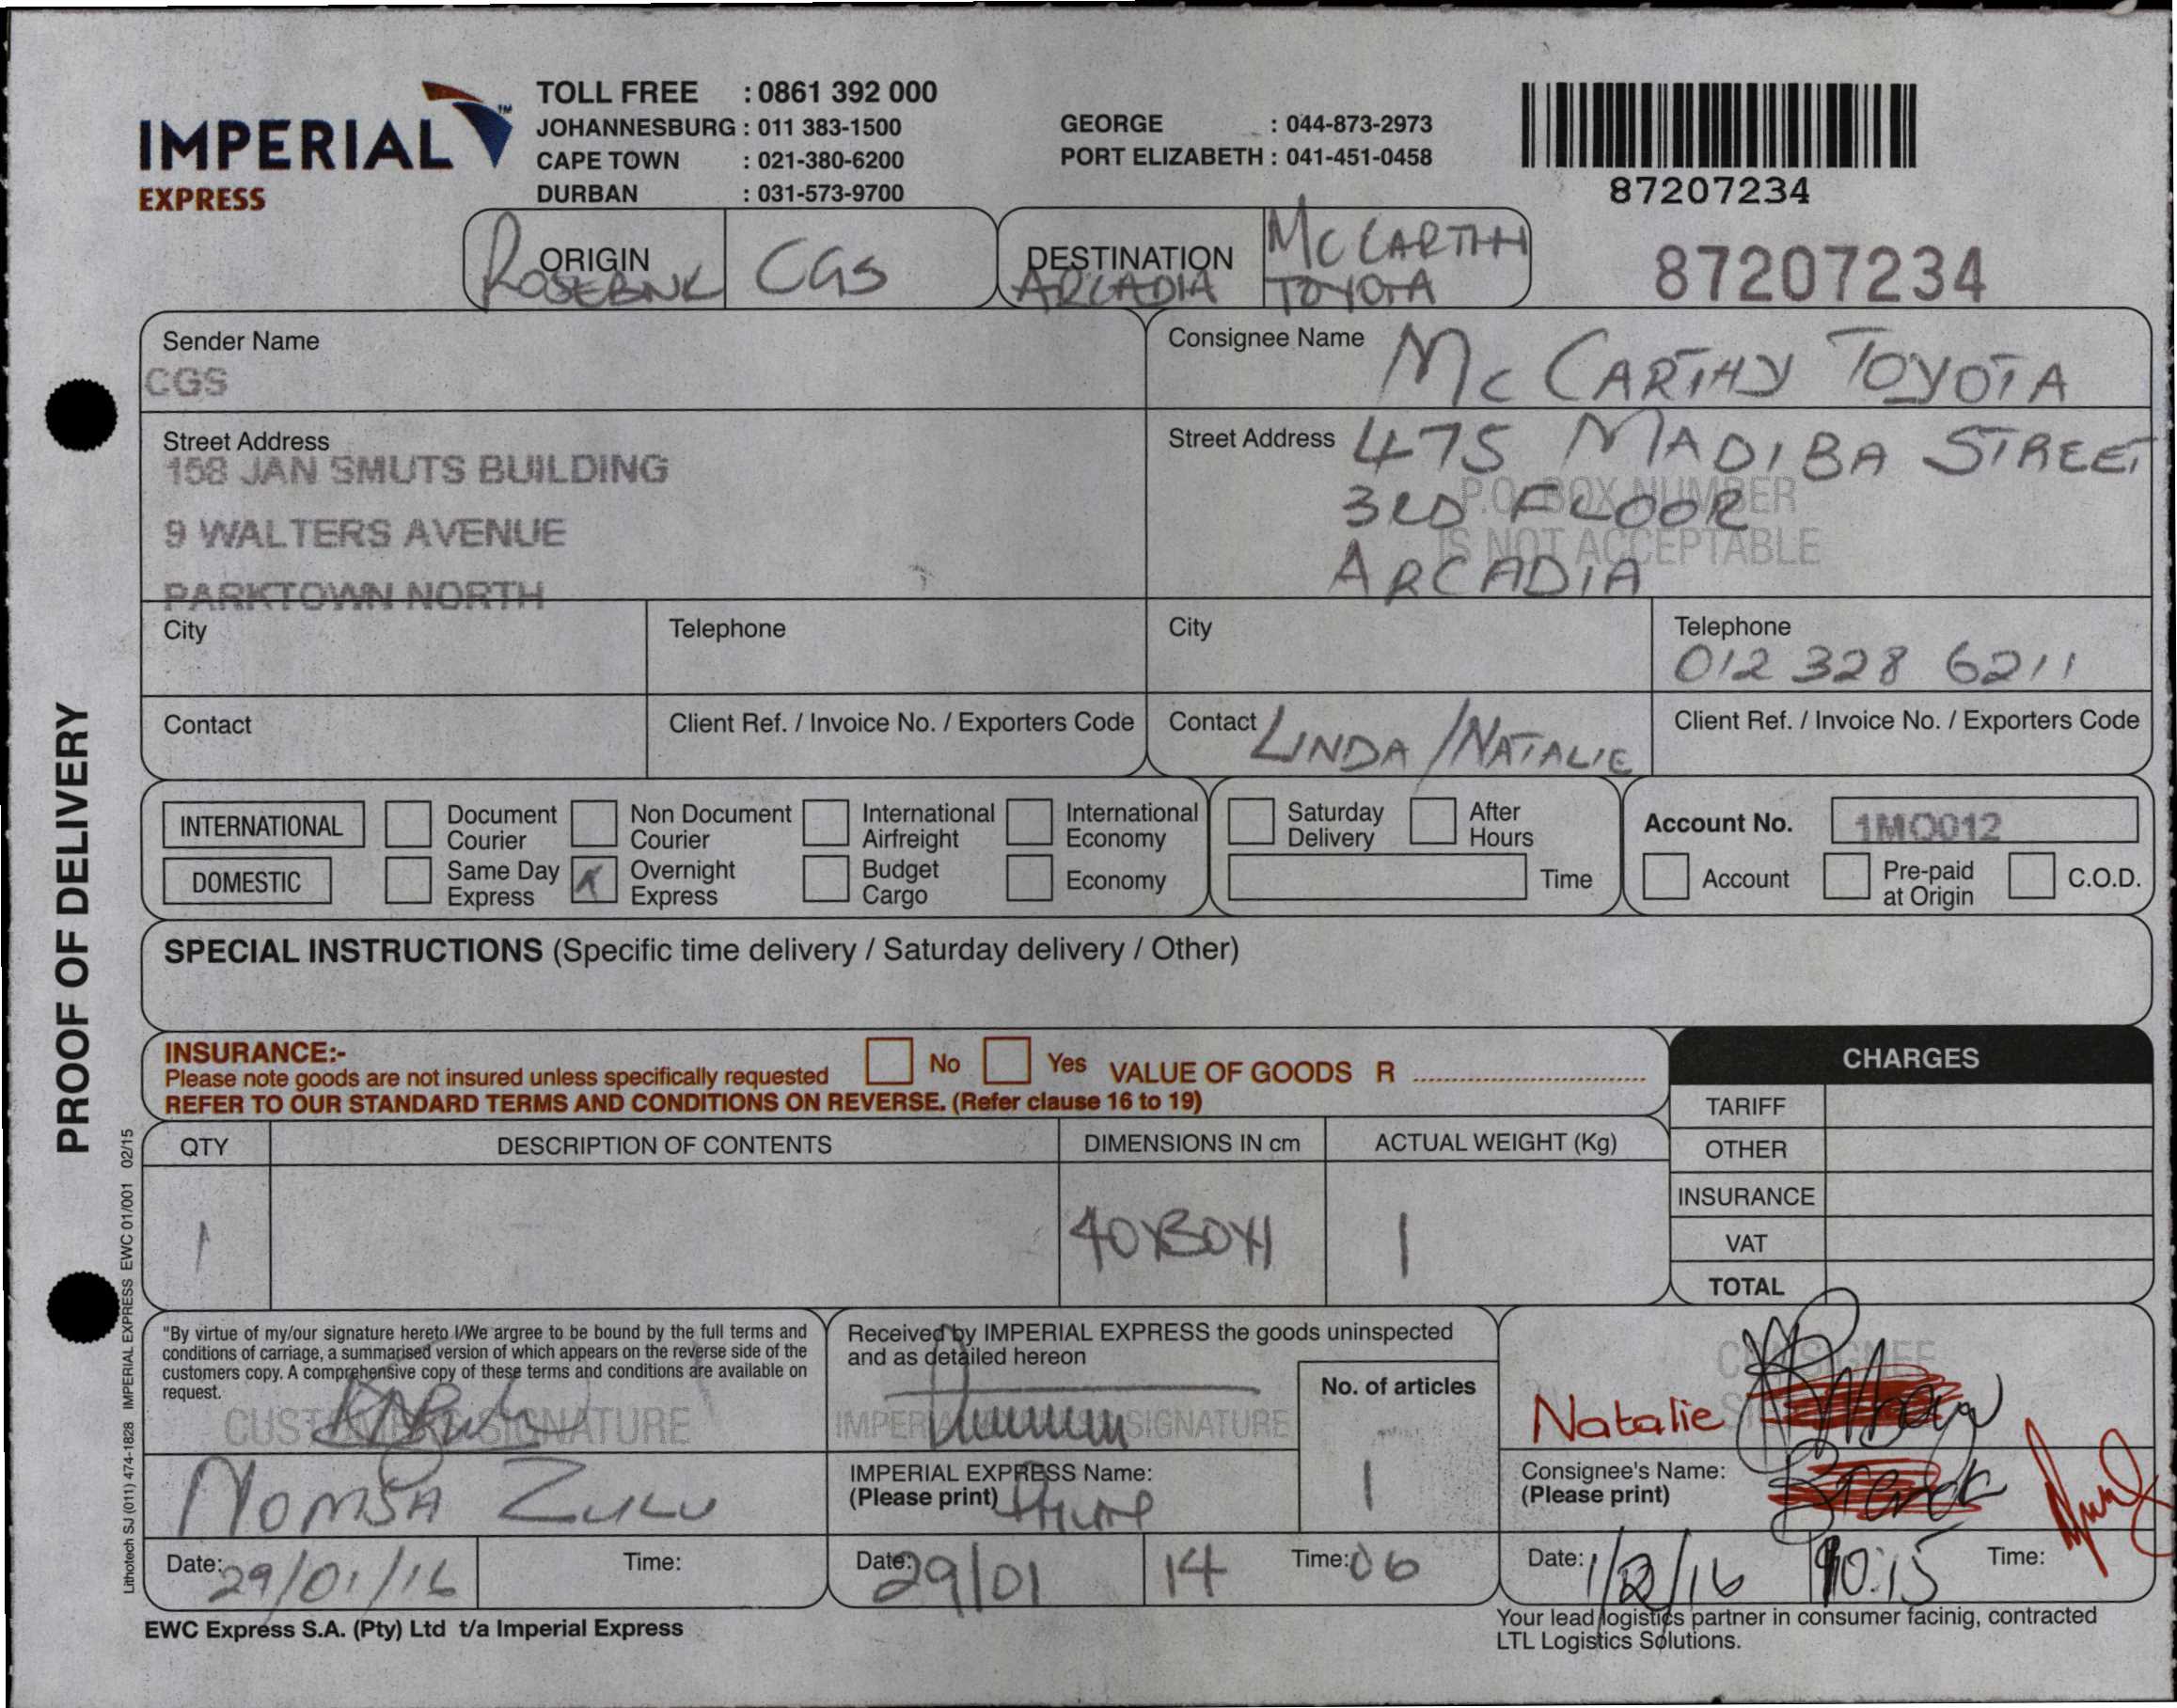 IMPERIAL™
EXPRESS
TOLL FREE : 0861 392 000
JOHANNESBURG : 011 383-1500
CAPE TOWN : 021-380-6200
DURBAN : 031-573-9700
GEORGE : 044-873-2973
PORT ELIZABETH : 041-451-0458
87207234
87207234
ORIGIN
ROSEBNK
CGS
DESTINATION
ARCADIA
MCCARTHY
TOYOTA
Sender Name
CGS
Consignee Name MC CARTHY TOYOTA
Street Address
158 JAN SMUTS BUILDING
9 WALTERS AVENUE
PARKTOWN NORTH
Street Address 475 MADIBA STREET
3RD FLOOR
ARCADIA
P.O. BOX NUMBER
IS NOT ACCEPTABLE
City
Telephone
City
Telephone
012 328 6211
Contact
Client Ref. / Invoice No. / Exporters Code
Contact LINDA / NATALIE
Client Ref. / Invoice No. / Exporters Code
INTERNATIONAL
Document Courier
Non Document Courier
International Airfreight
International Economy
DOMESTIC
Same Day Express
Overnight Express
Budget Cargo
Economy
Saturday Delivery
After Hours
Time
Account No. 1MO012
Account
Pre-paid at Origin
C.O.D.
SPECIAL INSTRUCTIONS (Specific time delivery / Saturday delivery / Other)
INSURANCE:-
Please note goods are not insured unless specifically requested
No Yes VALUE OF GOODS R
REFER TO OUR STANDARD TERMS AND CONDITIONS ON REVERSE. (Refer clause 16 to 19)
CHARGES
TARIFF
OTHER
INSURANCE
VAT
TOTAL
QTY
DESCRIPTION OF CONTENTS
DIMENSIONS IN cm
ACTUAL WEIGHT (Kg)
1
40X30X1
1
"By virtue of my/our signature hereto I/We argree to be bound by the full terms and
conditions of carriage, a summarised version of which appears on the reverse side of the
customers copy. A comprehensive copy of these terms and conditions are available on
request.
CUSTOMER'S SIGNATURE
NOMSA ZULU
Date: 29/01/16
Time:
Received by IMPERIAL EXPRESS the goods uninspected
and as detailed hereon
IMPERIAL EXPRESS SIGNATURE
No. of articles
1
IMPERIAL EXPRESS Name:
(Please print)
Date: 29/01
14
Time: 06
CONSIGNEE
Natalie
Consignee's Name:
(Please print)
Date: 1/2/16
10:15
Time:
EWC Express S.A. (Pty) Ltd t/a Imperial Express
Your lead logistics partner in consumer facinig, contracted
LTL Logistics Solutions.
PROOF OF DELIVERY
Lithotech SJ (011) 474-1828 IMPERIAL EXPRESS EWC 01/001 02/15